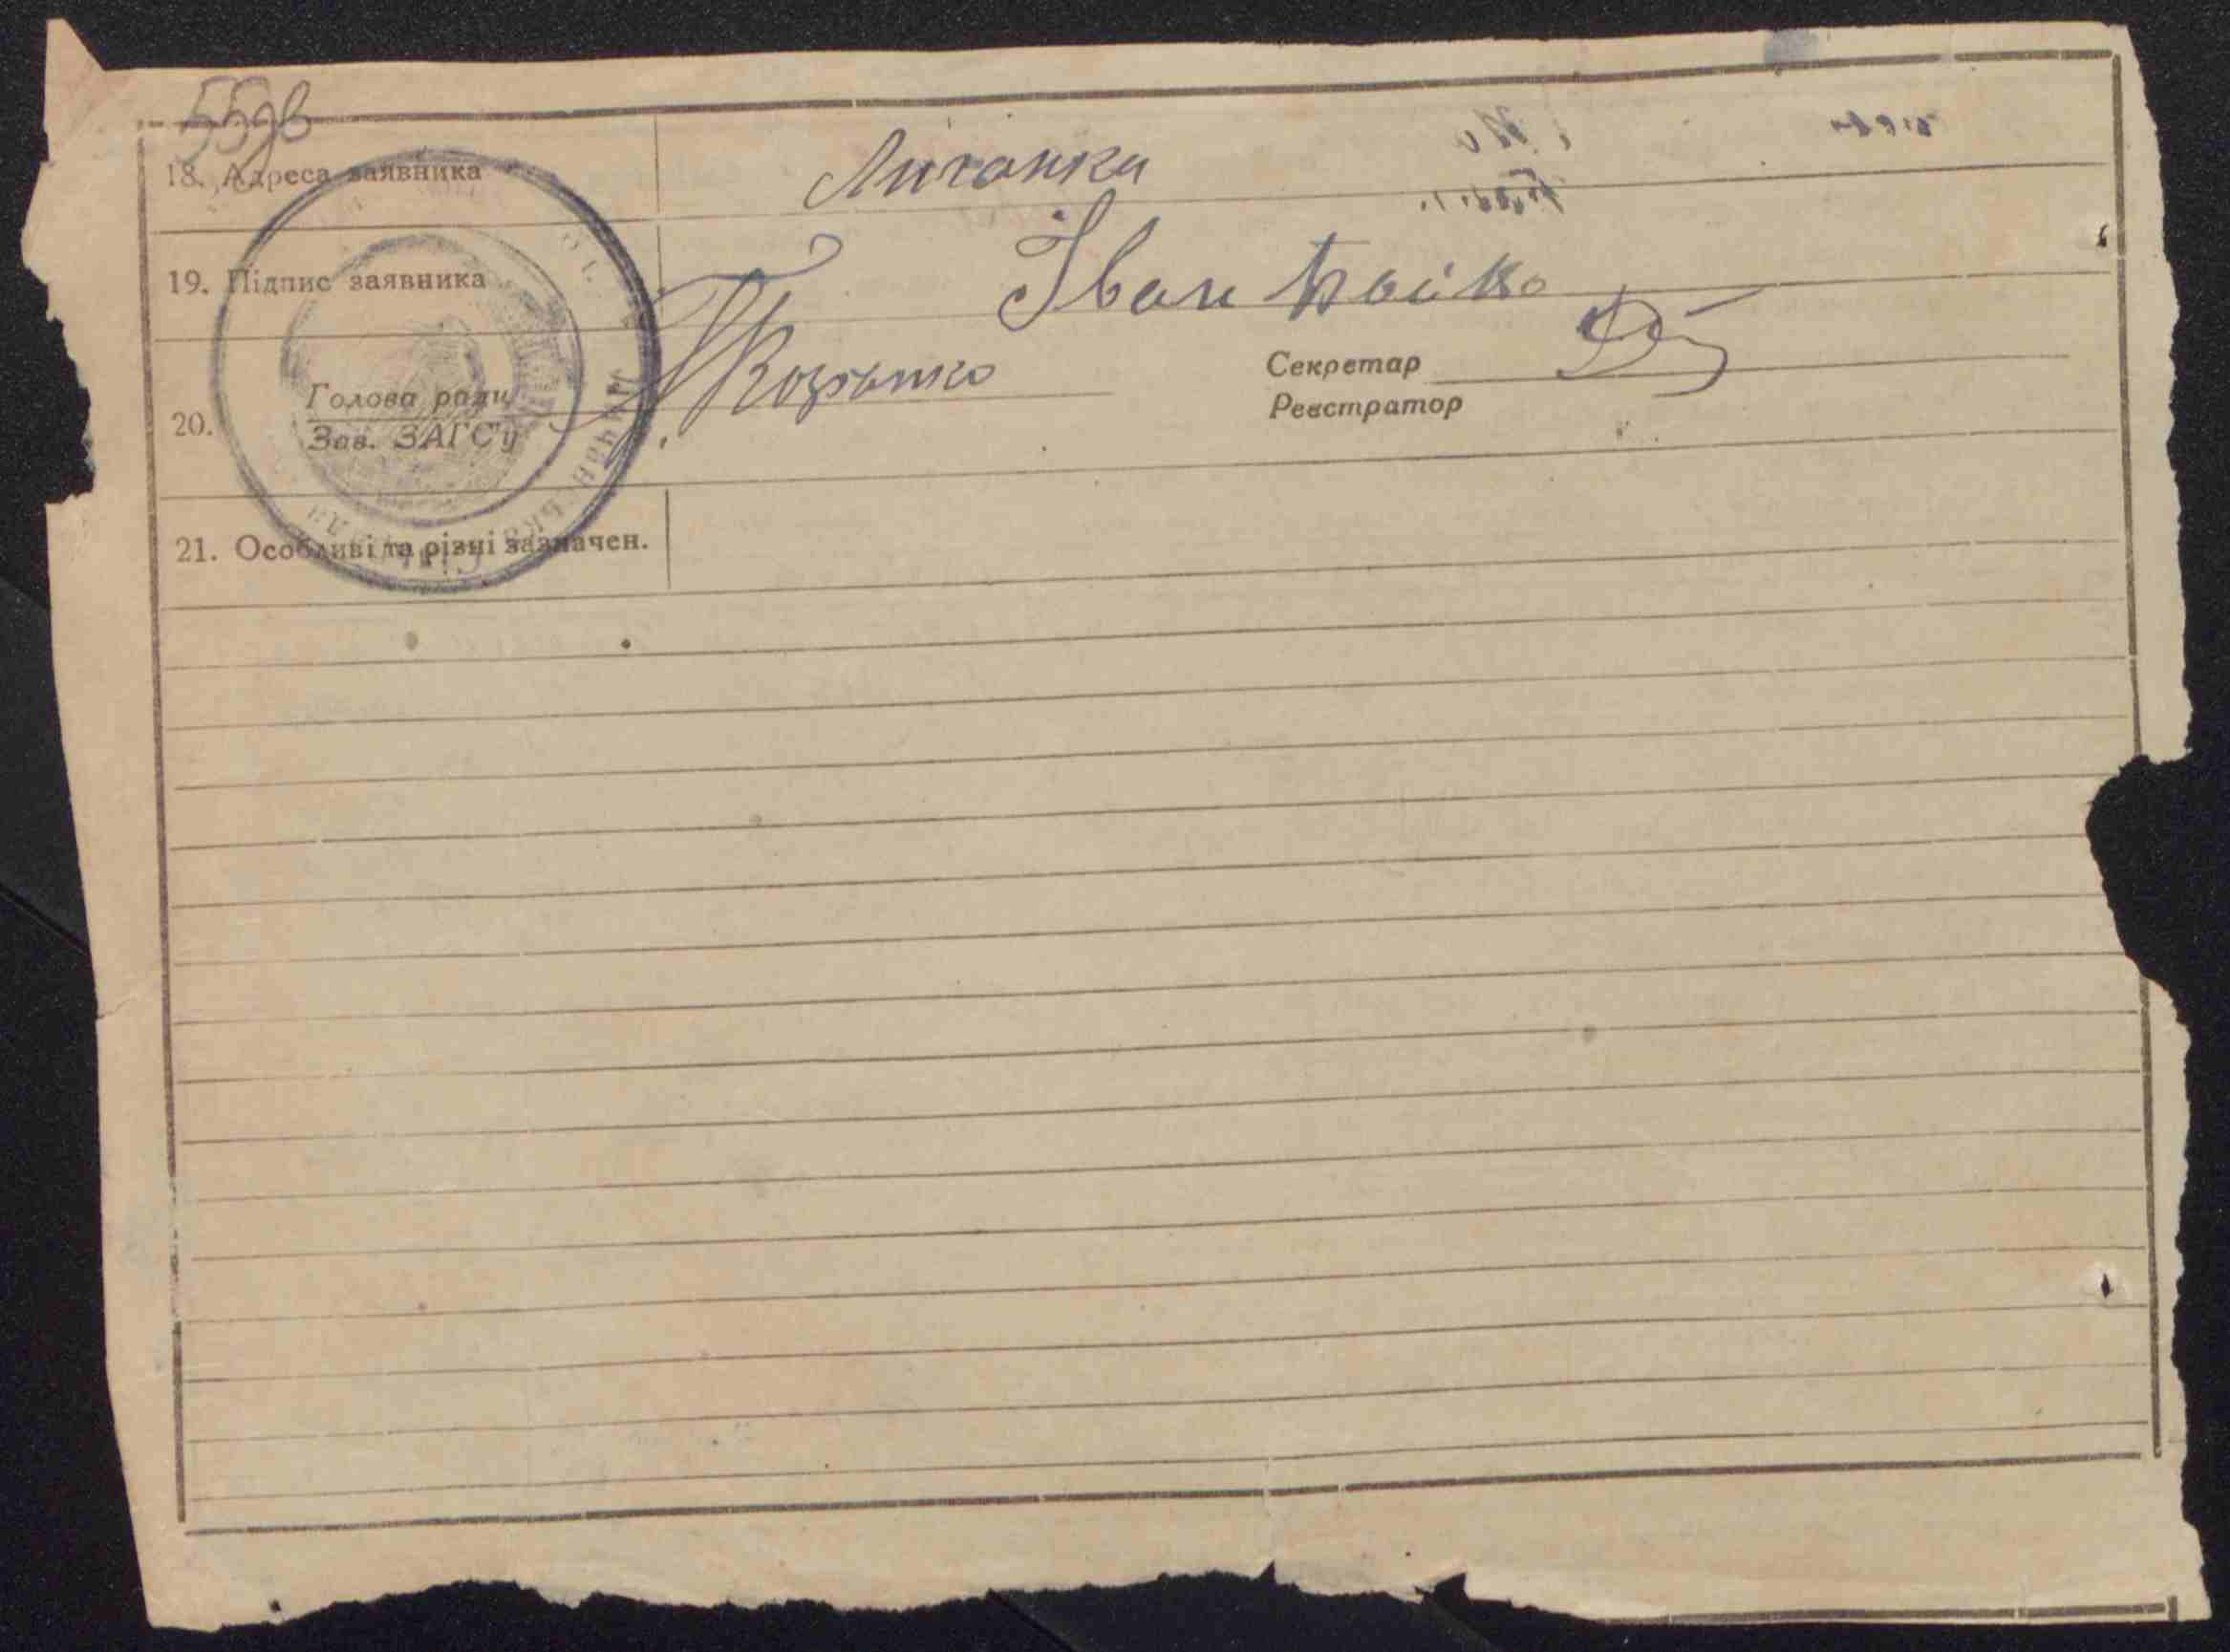 55зв
18. Адреса заявника Личанка
19. Підпис заявника Іван Бойко
20. Голова ради
Зав. ЗАГС'у
Секретар
Реєстратор
21. Особливі та різні зазначен.